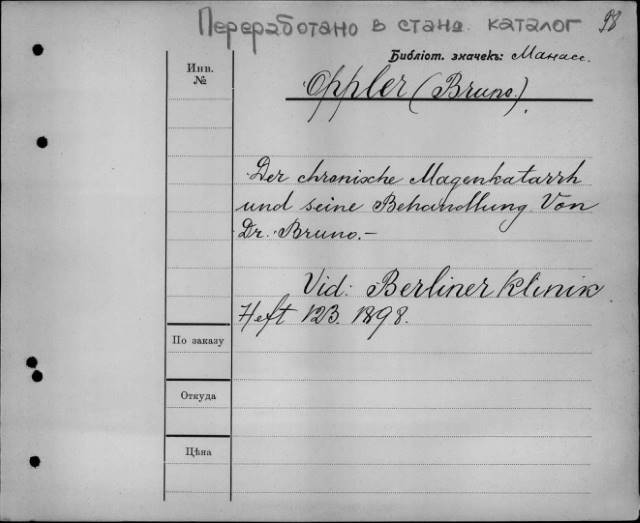 Переработано в станд. каталог 98
Библіот. значекъ: Манасс.
Инв. №
Oppler (Bruno.)
Der chronische Magenkatarrh
und seine Behandlung Von
Dr. Bruno.-
Vid: Berliner Klinik
Heft 123. 1898.
По заказу
Откуда
Цѣна